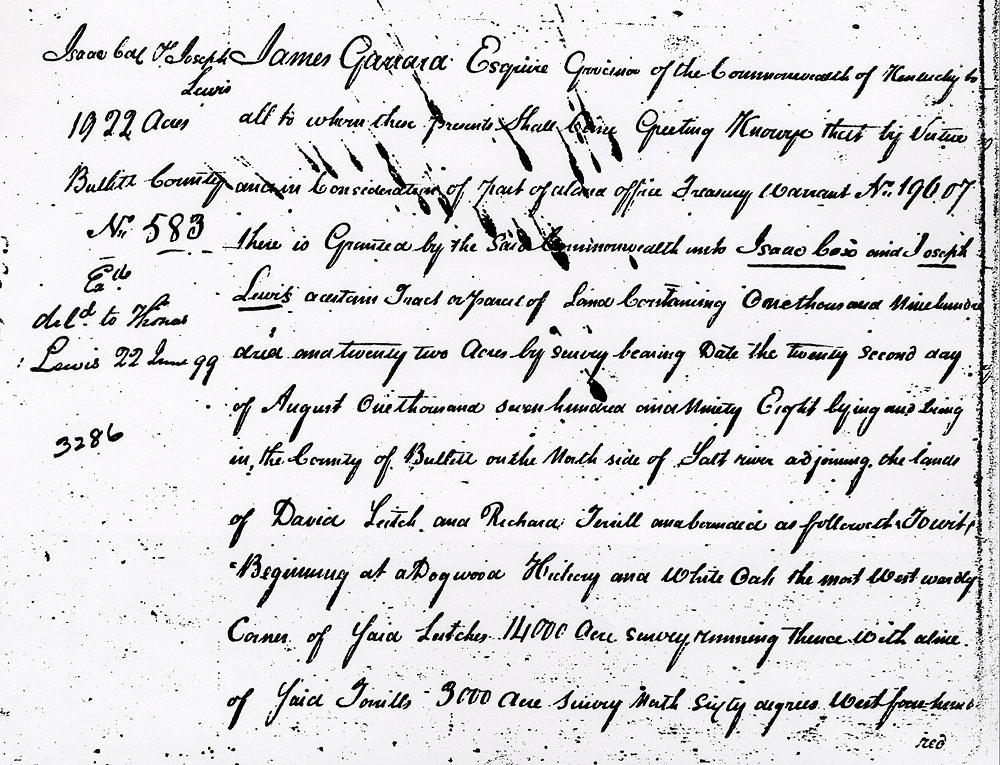 Isaac Cox & Joseph
Lewis
1922 Acres
Bullitt County
No. 583
Ed
deld. to Thomas
Lewis 22 June 99
3286
James Garrard Esquire Governor of the Commonwealth of Kentucky to
all to whom these presents Shall Come Greeting Knowye that by Virtue
and in Consideration of Part of aLand office Treasury Warrant No. 19607
there is Granted by the Said Commonwealth unto Isaac Cox and Joseph
Lewis acertain Tract or Parcel of Land Containing One thousand Nine hundre
dred and twenty two Acres by Survey bearing Date the twenty Second day
of August One thousand seven hundred and Ninety Eight lying and being
in the County of Bullitt on the North side of Salt river adjoining the lands
of David Leitch and Richard Terrill and bounded as followeth Towit,
Beginning at a Dogwood Hickory and White Oak the most West wardly
Corner of Said Leitches 14000 Acre Survey running thence With aline
of Said Terrills 3000 Acre Survey North Sixty degrees West four hund
red